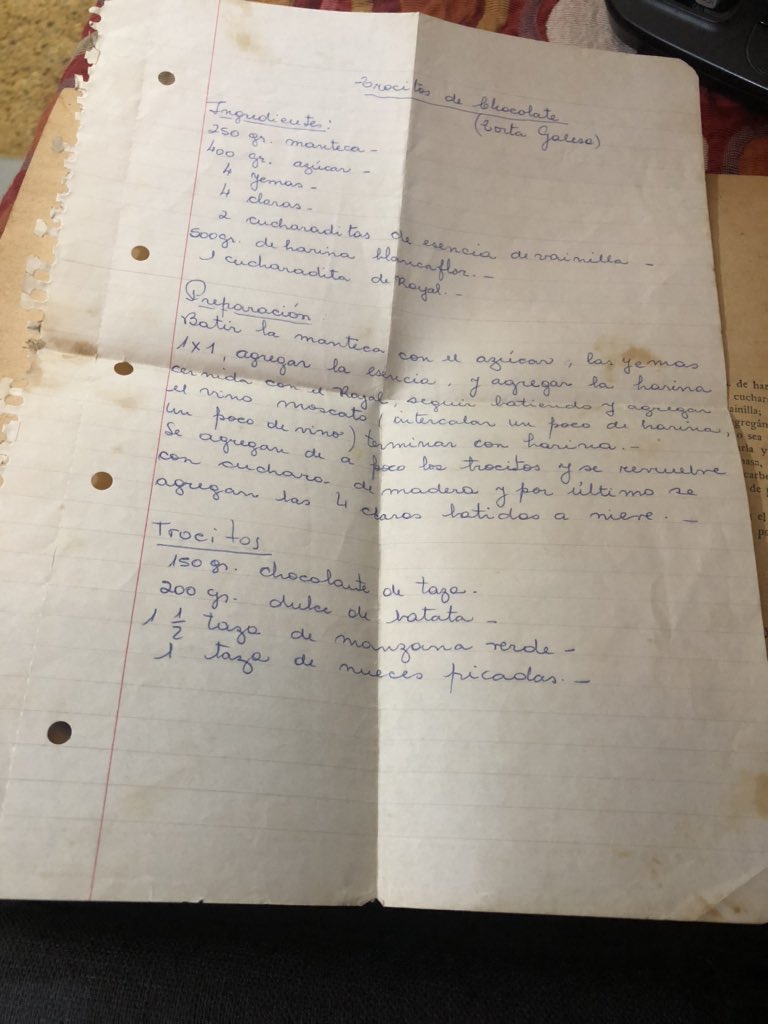 Trocitos de Chocolate
(Torta Galesa)
Ingredientes:
250 gr. manteca -
400 gr. azúcar -
4 yemas -
4 claras -
2 cucharaditas de esencia de vainilla -
500gr. de harina blancaflor. -
1 cucharadita de Royal. -
Preparación:
Batir la manteca con el azúcar, las yemas
1x1, agregar la esencia, y agregar la harina
cernida con el Royal, seguir batiendo y agregar
el vino moscato (intercalar un poco de harina,
un poco de vino) terminar con harina. -
Se agregan de a poco los trocitos y se remuelve
con cuchara de madera y por último se
agregan las 4 claras batidas a nieve. -
Trocitos
150 gr. chocolante de taza.
200 gr. dulce de batata -
1 1/2 taza de manzana verde -
1 taza de nueces picadas. -
de har
cuchar
ainilla;
gregán
sea
rla y
masa,
carbo
de
el
po